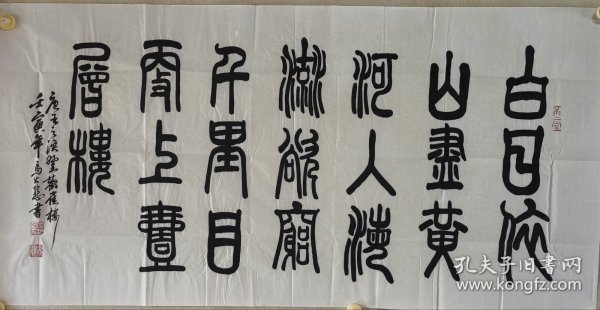 白日依
山盡黃
河入海
流欲窮
千里目
更上壹
層樓
唐王之渙登鸛雀樓
壬寅年馬書
孔夫子旧书网
www.kongfz.com